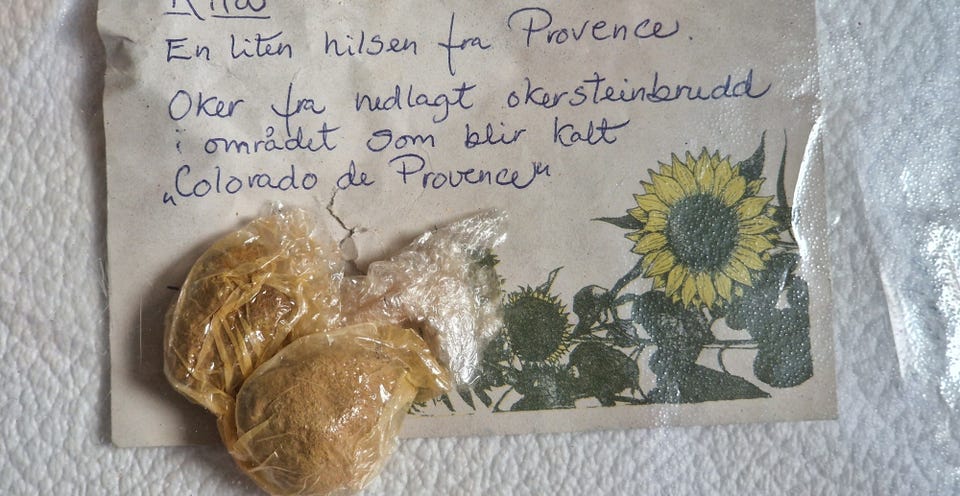 En liten hilsen fra Provence.
Oker fra nedlagt okersteinbrudd
i området som blir kalt
„Colorado de Provence"